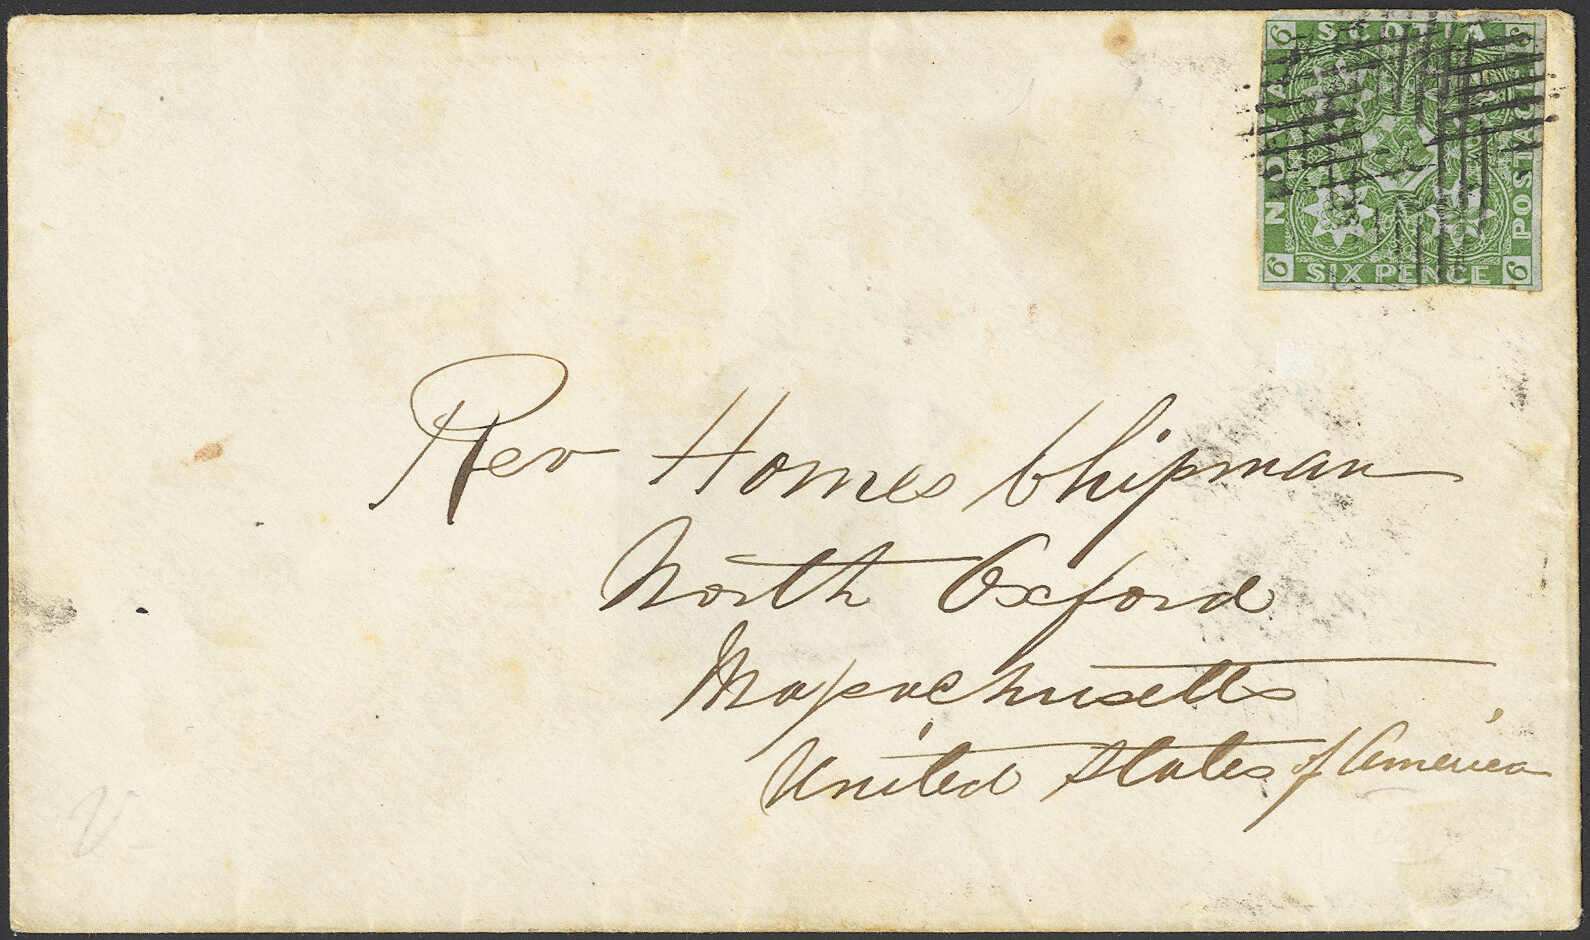 6 SCOTIA 6
NOVA
POSTAGE
6 SIX PENCE 6
Rev Homes Chipman
North Oxford
Massachusetts
United States of America